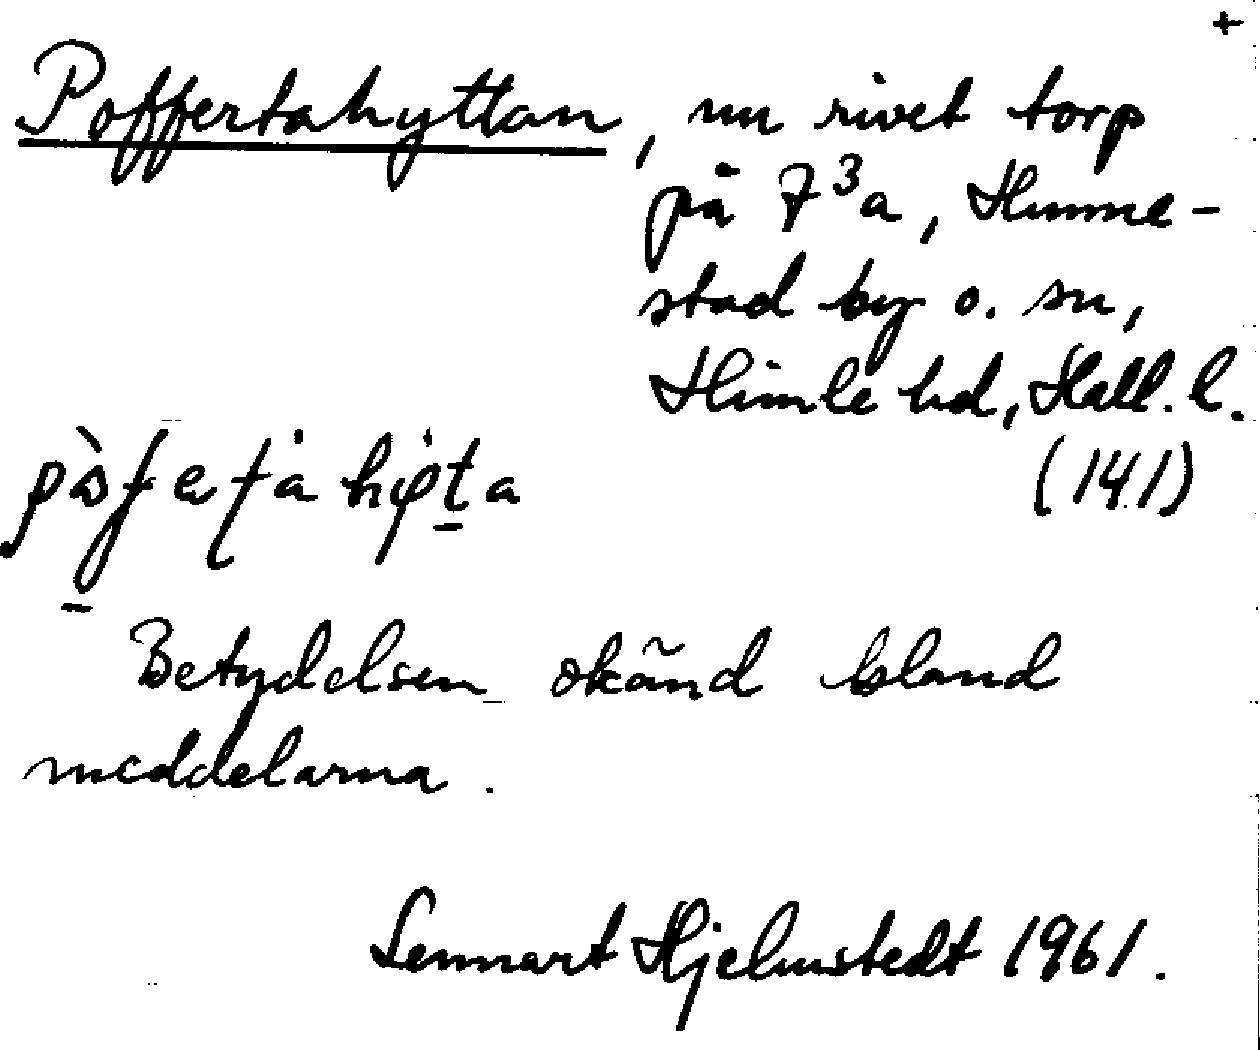 +
Poffertahyttan, nu rivet torp
på 7³a, Hunne-
stad by o. sn,
Himle hd, Hall. l.
(141)
Betydelsen okänd bland
meddelarna.
Lennart Hjelmstedt 1961.